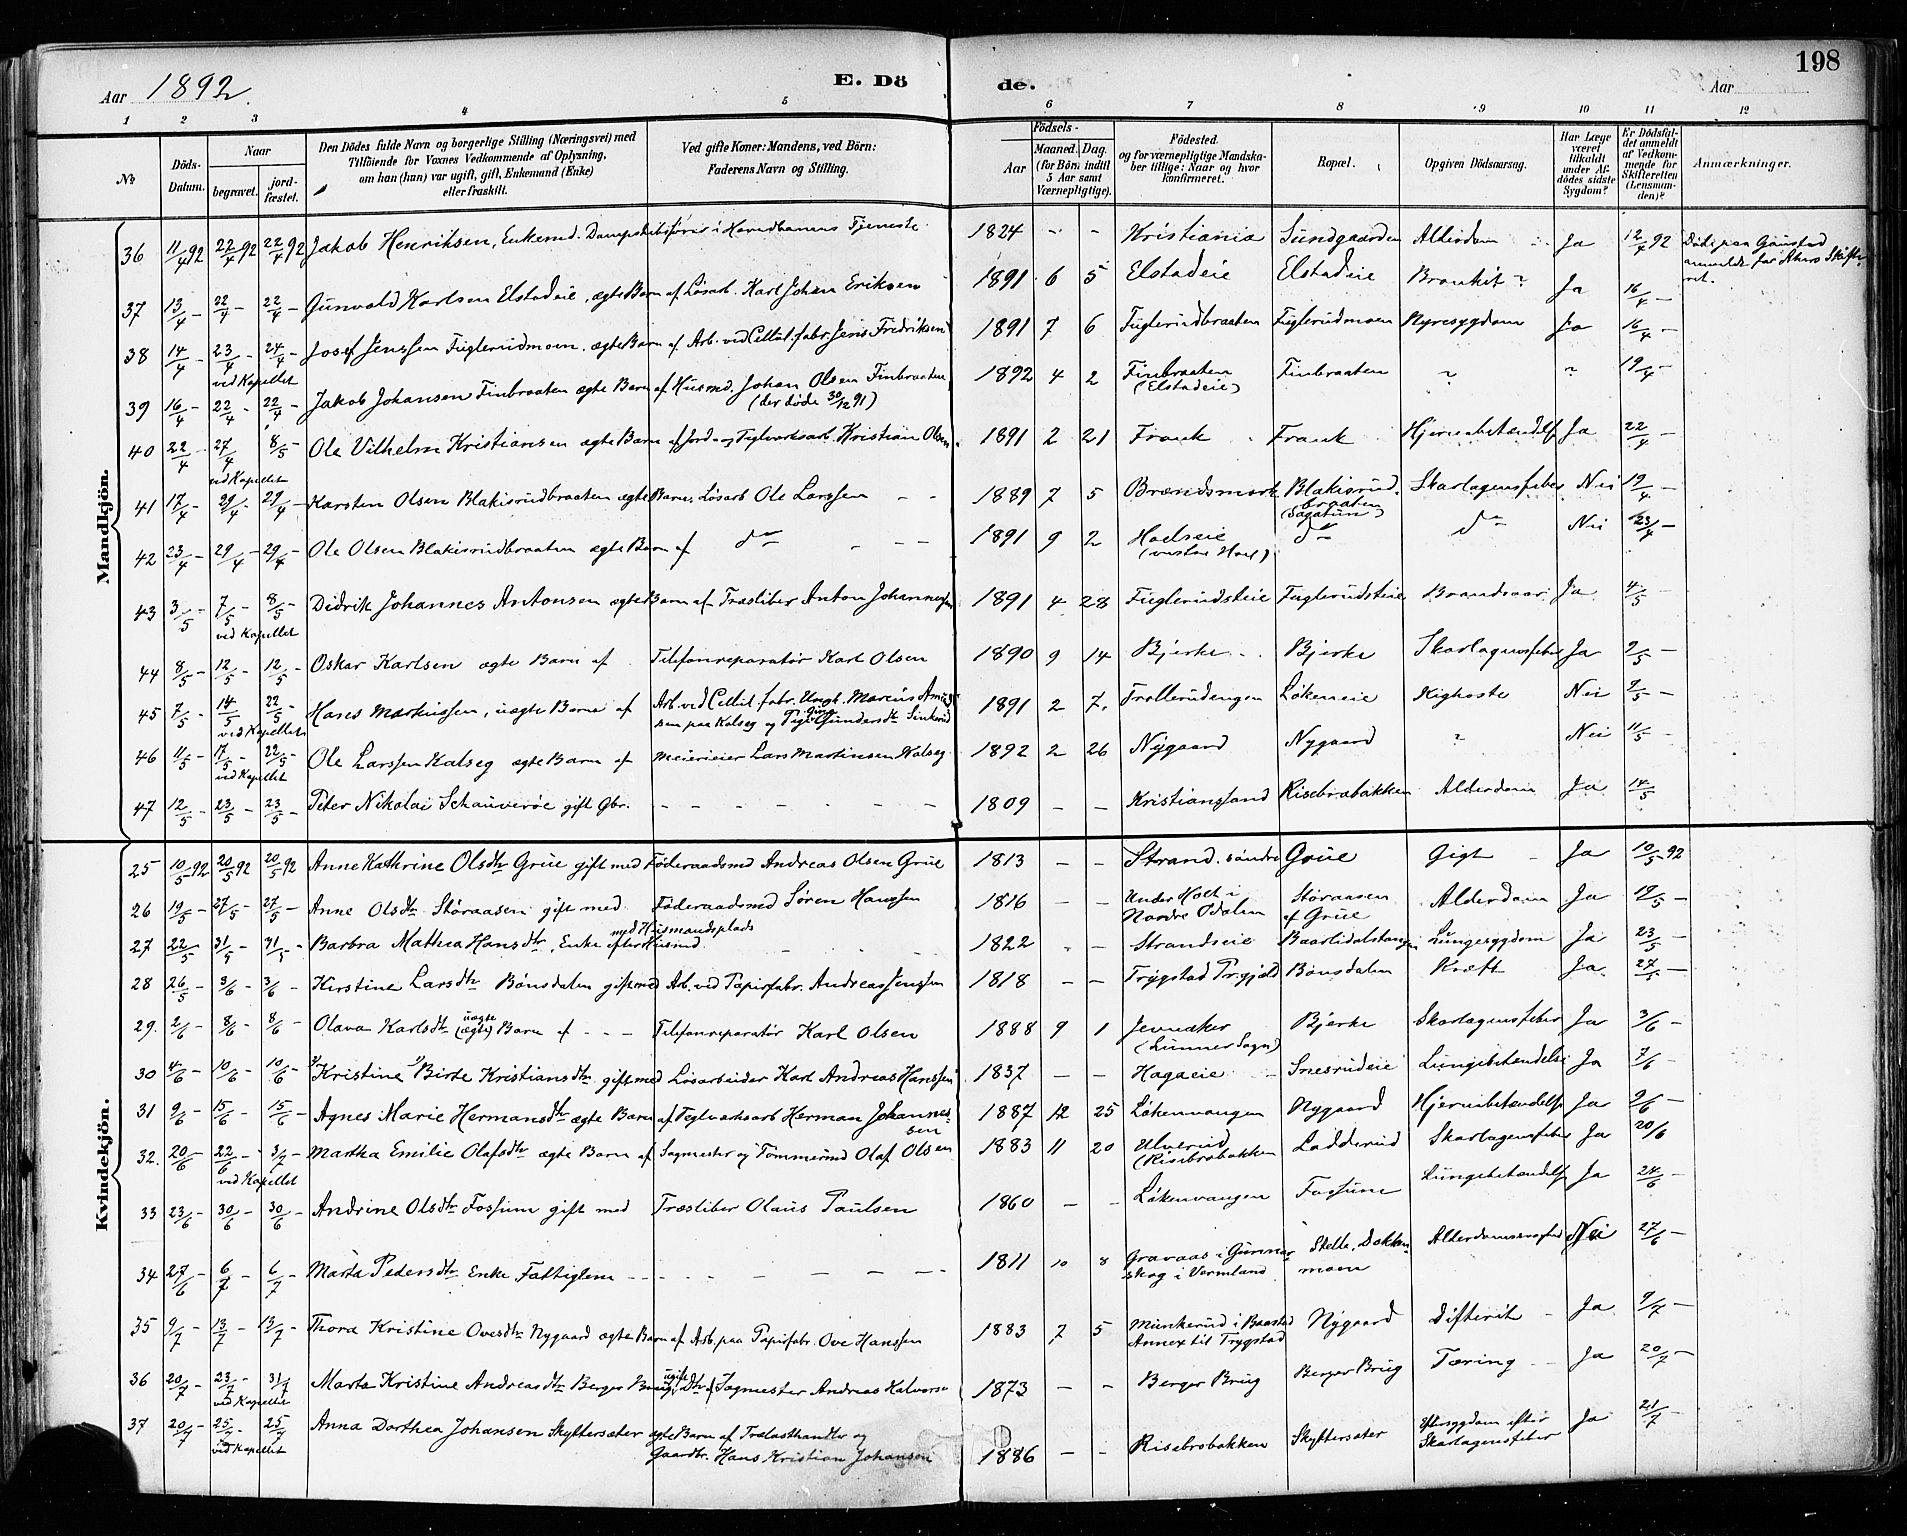 198
Aar 1892.
E. Döde.
Aar
1 2 3 4 5 6 7 8 9 10 11 12
No
Döds-Datum.
Naar
begravet.
jord-fæstet.
Den Dödes fulde Navn og borgerlige Stilling (Næringsvei) med
Tilföiende for Voxnes Vedkommende af Oplysning,
om han (hun) var ugift, gift, Enkemand (Enke)
eller fraskilt.
Ved gifte Koner: Mandens, ved Börn:
Faderens Navn og Stilling.
Födsels-
Aar
Maaned. Dag.
(for Börn indtil
5 Aar samt
Værnepligtige).
Födested
og for værnepligtige Mandska-
ber tillige: Naar og hvor
konfirmeret.
Bopæl.
Opgiven Dödsaarsag.
Har Læge
været
tilkaldt
under Af-
dödes sidste
Sygdom?
Er Dödsfal-
det anmeldt
af Vedkom-
mende for
Skifteretten
(Lensman-
den)?
Anmærkninger.
Mandkjön.
36 11/4 92 22/4 92 22/4 92 Jakob Henriksen, Enkemd. Dampskibsfører i Hovedbanens Tjeneste 1824 - - Kristiania Sundgaarden Alderdom Ja 12/4 92 Døde paa Gaustad
anmeldt for Akers Skifte-
ret.
37 13/4 - 22/4 - 22/4 - Gunvald Karlsen Elstadeie, ægte Barn af Løsarb. Karl Johan Eriksen 1891 6 5 Elstadeie Elstadeie Bronkit ? Ja 16/4 -
38 14/4 - 23/4 - 24/4 - Josef Jenssen Fuglerudmoen, ægte Barn af Arb. ved Cellul.fabr. Jens Fredriksen 1891 7 6 Fuglerudbraaten Fuglerudmoen Nyresygdom Ja 16/4 -
ved Kapellet
39 16/4 - 22/4 - 22/4 - Jakob Johansen Finbraaten ægte Barn af Husmd. Johan Olsen Finbraaten 1892 4 2 Finbraaten Finbraaten ? ? 19/4 -
(der døde 30/12 91) (Elstadeie)
40 22/4 - 27/4 8/5 - Ole Vilhelm Kristiansen ægte Barn af Jord- og Teglværksarb. Kristian Olsen 1891 2 21 Fronk Fronk Hjernebetændelse Ja 22/4 -
ved Kapellet
41 17/4 - 29/4 - 29/4 - Karsten Olsen Blakisrudbraaten ægte Barn, Løsarb Ole Larssen - - 1889 7 5 Brændsmork Blakisrud- Skarlagensfeber Nei 19/4 -
braaten
(Sagatun)
42 23/4 - 29/4 - 29/4 - Ole Olsen Blakisrudbraaten ægte Barn af do - - 1891 9 2 Hoelseie do do Nei 23/4 -
(vestre Hoel)
43 3/5 - 7/5 - 8/5 - Didrik Johannes Antonsen ægte Barn af Træsliber Anton Johannessen 1891 4 28 Fuglerudsteie Fuglerudsteie Brandsaar Ja 4/5 -
ved Kapellet
44 8/5 - 12/5 - 12/5 - Oskar Karlsen ægte Barn af Telefonreparatør Karl Olsen 1890 9 14 Bjerke Bjerke Skarlagensfeber Ja 9/5 -
45 7/5 - 14/5 22/5 - Hans Martinssen, uægte Barn af Arb. ved Cellul.fabr. Ungk. Marcus Amund- 1891 2 7. Trollerudengen Løkeneie Kighoste Nei 9/5 -
ved Kapellet sen paa Kalseg og Pige Gundersdtr
46 11/5 - 17/5 - 22/5 - Ole Larssen Kalseg ægte Barn af Meierieier Lars Martinsen Kalseg 1892 2 26 Nygaard Nygaard ? Nei 11/5 -
ved Kapellet
47 12/5 - 23/5 - 23/5 - Peter Nikolai Schauverøe gift Gbr. - - - - - 1809 - - Kristianssand Risebrobakken Alderdom Ja 14/5
Kvindekjön.
25 10/5 92 20/5 92 20/5 92 Anne Kathrine Olsdtr Grue gift med Føderaadsmd Andreas Olsen Grue 1813 - - Strand, søndre Grue Gigt Ja 10/5 92
26 19/5 - 27/5 - 27/5 - Anne Olsdtr Støraasen gift med Føderaadsmd Søren Hanssen 1816 - - Under Holt i Støraasen Alderdom Ja 19/5 -
Nordre Odalen af Grue
med Husmandsplads
27 22/5 - 31/5 - 31/5 - Barbra Mathea Hansdtr, Enke efter Husmd. - - 1822 - - Strandseie Baarlidalstangen Lungesygdom Ja 23/5 -
28 26/5 - 3/6 - 3/6 - Kirstine Larsdtr Bønsdalen gift med Arb. ved Papirfabr. Andreas Jenssen 1818 - - Trygstad Pr.gjæld Bønsdalen Kræft Ja 27/5 -
29. 2/6 - 8/6 - 8/6 Olava Karlsdtr (ægte) Barn af - - - Telefonreparatør Karl Olsen 1888 9 1 Jevnaker Bjerke Skarlagensfeber Ja 3/6 -
uægte (Lunner Sogn)
30 4/6 - 10/6 - 10/6 - Kristine Birte Kristiansdtr gift med Løsarbeider Karl Andreas Hanssen 1837 - - Hagaeie Snesrudeie Lungebetændelse Ja 7/6 -
31 9/6 - 15/6 - 15/6 - Agnes Marie Hermansdtr ægte Barn af Teglværksarb Herman Johannes- 1887 12 25 Løkenvangen Nygaard Hjernebetændelse Ja 9/6 -
sen
32. 20/6 - 22/6 - 3/7 - Martha Emilie Olafsdtr ægte Barn af Sagmester og Tømmermd Olaf Olsen 1883 11 20 Ulverud Ladderud Skarlagensfeber Ja 20/6
ved Kapellet (Risebrobakken
33 23/6 - 30/6 - 30/6 - Andrine Olsdtr Fossum gift med Træsliber Olaus Paulsen 1860 - - Løkenvangen Fossum Lungebetændelse Ja 24/6 -
34 27/6 - 6/7 - 6/7 - Marta Pedersdtr Enke Fattiglem - - - - - - 1811 10 8 Gravaas i Gunnar- Stelle, Dokken- Alderdomssvaghed Nei 27/6 -
skog i Vermland moen
35 9/7 - 13/7 - 13/7 - Thora Kristine Ovesdtr Nygaard ægte Barn af Arb. paa Papirfabr. Ove Hanssen 1883 7 5 Munkerud i Baastad Nygaard Difterit - Ja 9/7 -
Annex til Trygstad
36 20/7 - 23/7 - 31/7 Marta Kristine Andreasdtr Berger Brug, ugift Dtr af Sagmester Andreas Halvorse 1873 - - Berger Brug Berger Brug Tæring - Ja 20/7 -
ved Kapellet
37 20/7 - 25/7 - 25/7 - Anna Dorthea Johansen Skyttersæter ægte Barn af Trælasthandler og 1886 - - Risebrobakken Skyttersæter Eftersygdom efter Ja 21/7 -
ved Kapellet Gaardbr. Hans Kristian Johansen Skarlagensfeber